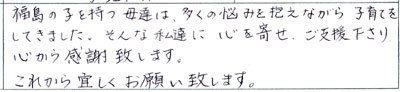 福島の子を持つ母達は、多くの悩みを抱えながら子育てを
してきました。そんな私達に心を寄せ、ご支援下さり
心から感謝致します。
これから宜しくお願い致します。